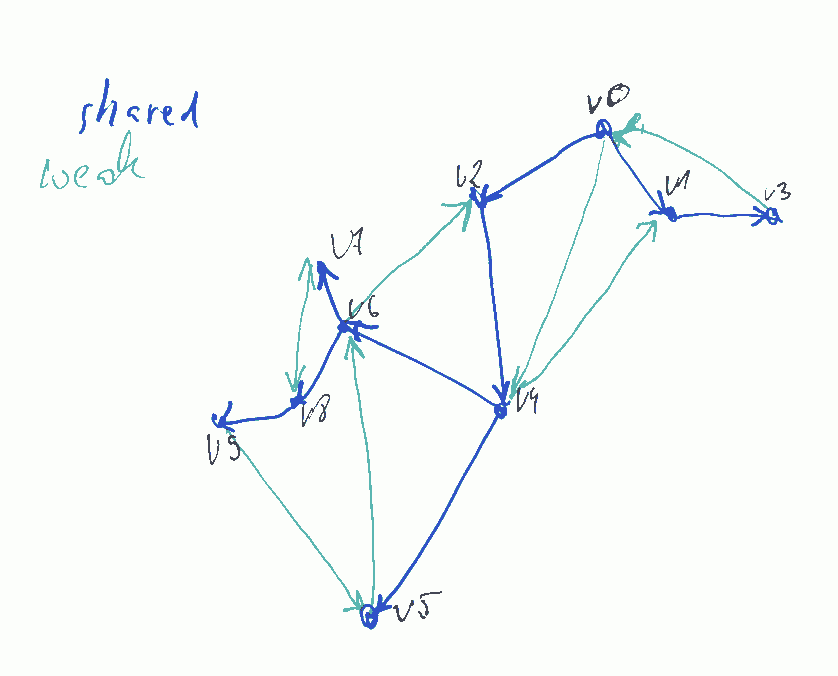 shared
weak
v0
v2
v1
v3
v7
v6
v4
v8
v9
v5